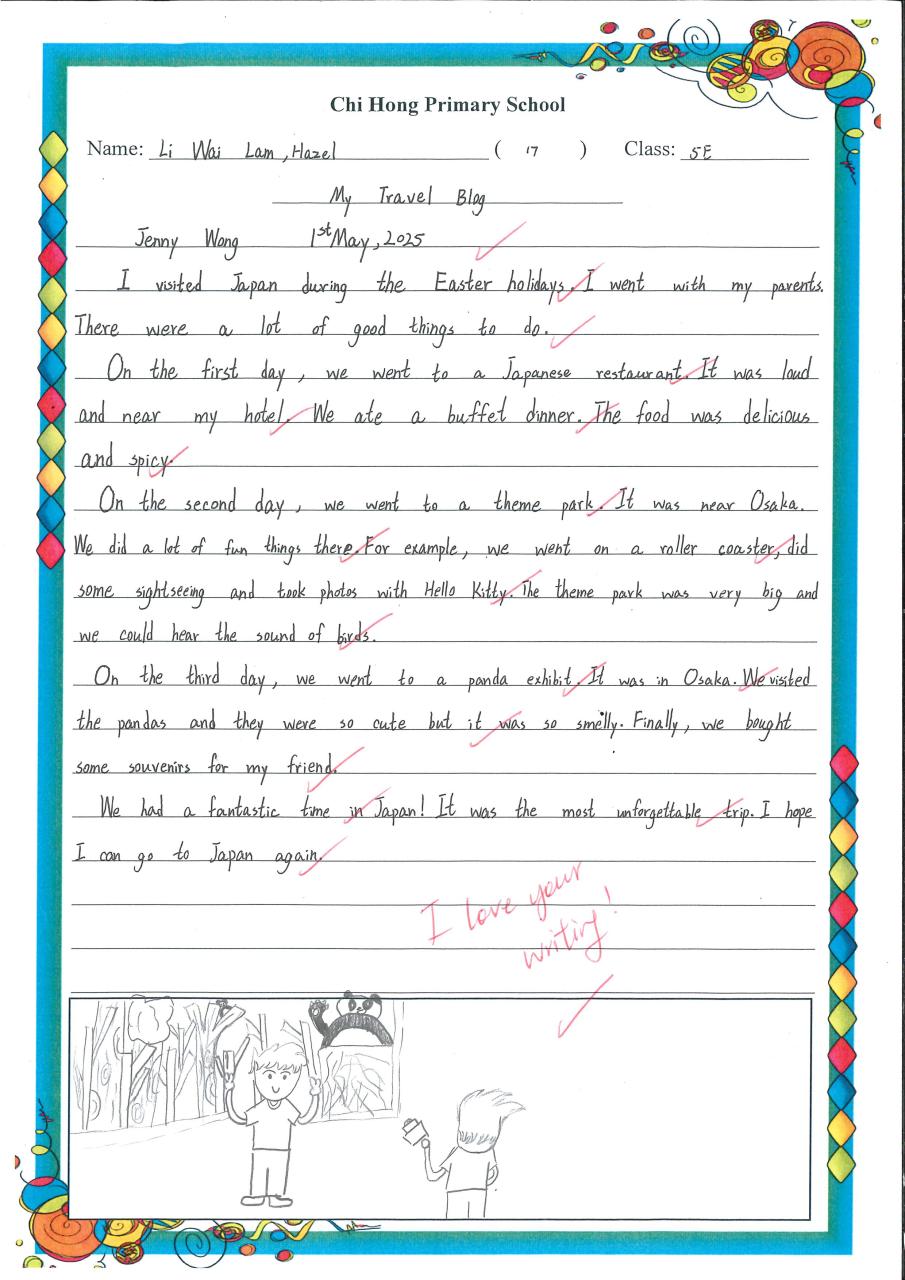 Chi Hong Primary School
Name: Li Wai Lam, Hazel ( 17 ) Class: 5E
My Travel Blog
Jenny Wong 1st May, 2025
I visited Japan during the Easter holidays. I went with my parents.
There were a lot of good things to do.
On the first day, we went to a Japanese restaurant. It was loud
and near my hotel. We ate a buffet dinner. The food was delicious
and spicy.
On the second day, we went to a theme park. It was near Osaka.
We did a lot of fun things there. For example, we went on a roller coaster, did
some sightseeing and took photos with Hello Kitty. The theme park was very big and
we could hear the sound of birds.
On the third day, we went to a panda exhibit. It was in Osaka. We visited
the pandas and they were so cute but it was so smelly. Finally, we bought
some souvenirs for my friend.
We had a fantastic time in Japan! It was the most unforgettable trip. I hope
I can go to Japan again.
I love your
writing!